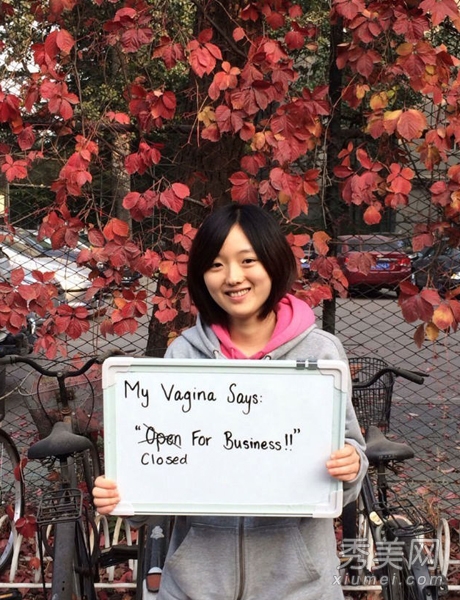 My Vagina Says:
"Open For Business!!"
Closed
秀美网
xiumei.com